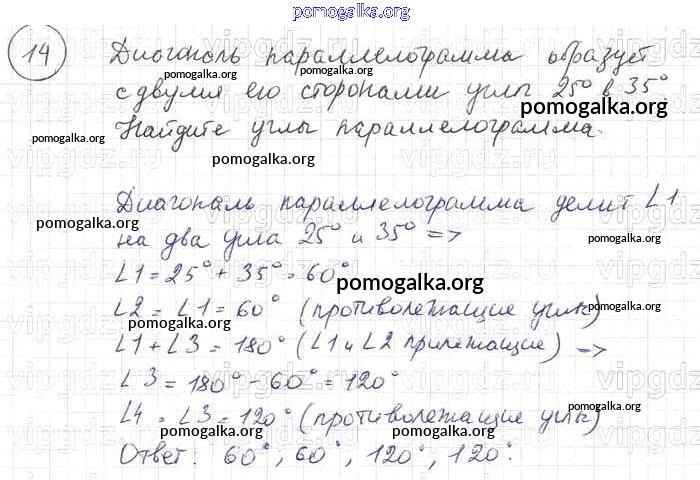 pomogalka.org
14 Диагональ параллелограмма образует
pomogalka.org pomogalka.org
с двумя его сторонами углы 25° и 35°
pomogalka.org
Найдите углы параллелограмма.
pomogalka.org
vipgdz.ru
Диагональ параллелограмма делит ∠1
pomogalka.org
на два угла 25° и 35° =>
pomogalka.org
∠1 = 25° + 35° = 60°
pomogalka.org
∠2 = ∠1 = 60° (противолежащие углы)
pomogalka.org pomogalka.org
∠1 + ∠3 = 180° (∠1 и ∠2 прилежащие) =>
∠3 = 180° - 60° = 120°
pomogalka.org
∠4 = ∠3 = 120° (противолежащие углы)
pomogalka.org pomogalka.org
Ответ: 60°, 60°, 120°, 120°.
pomogalka.org